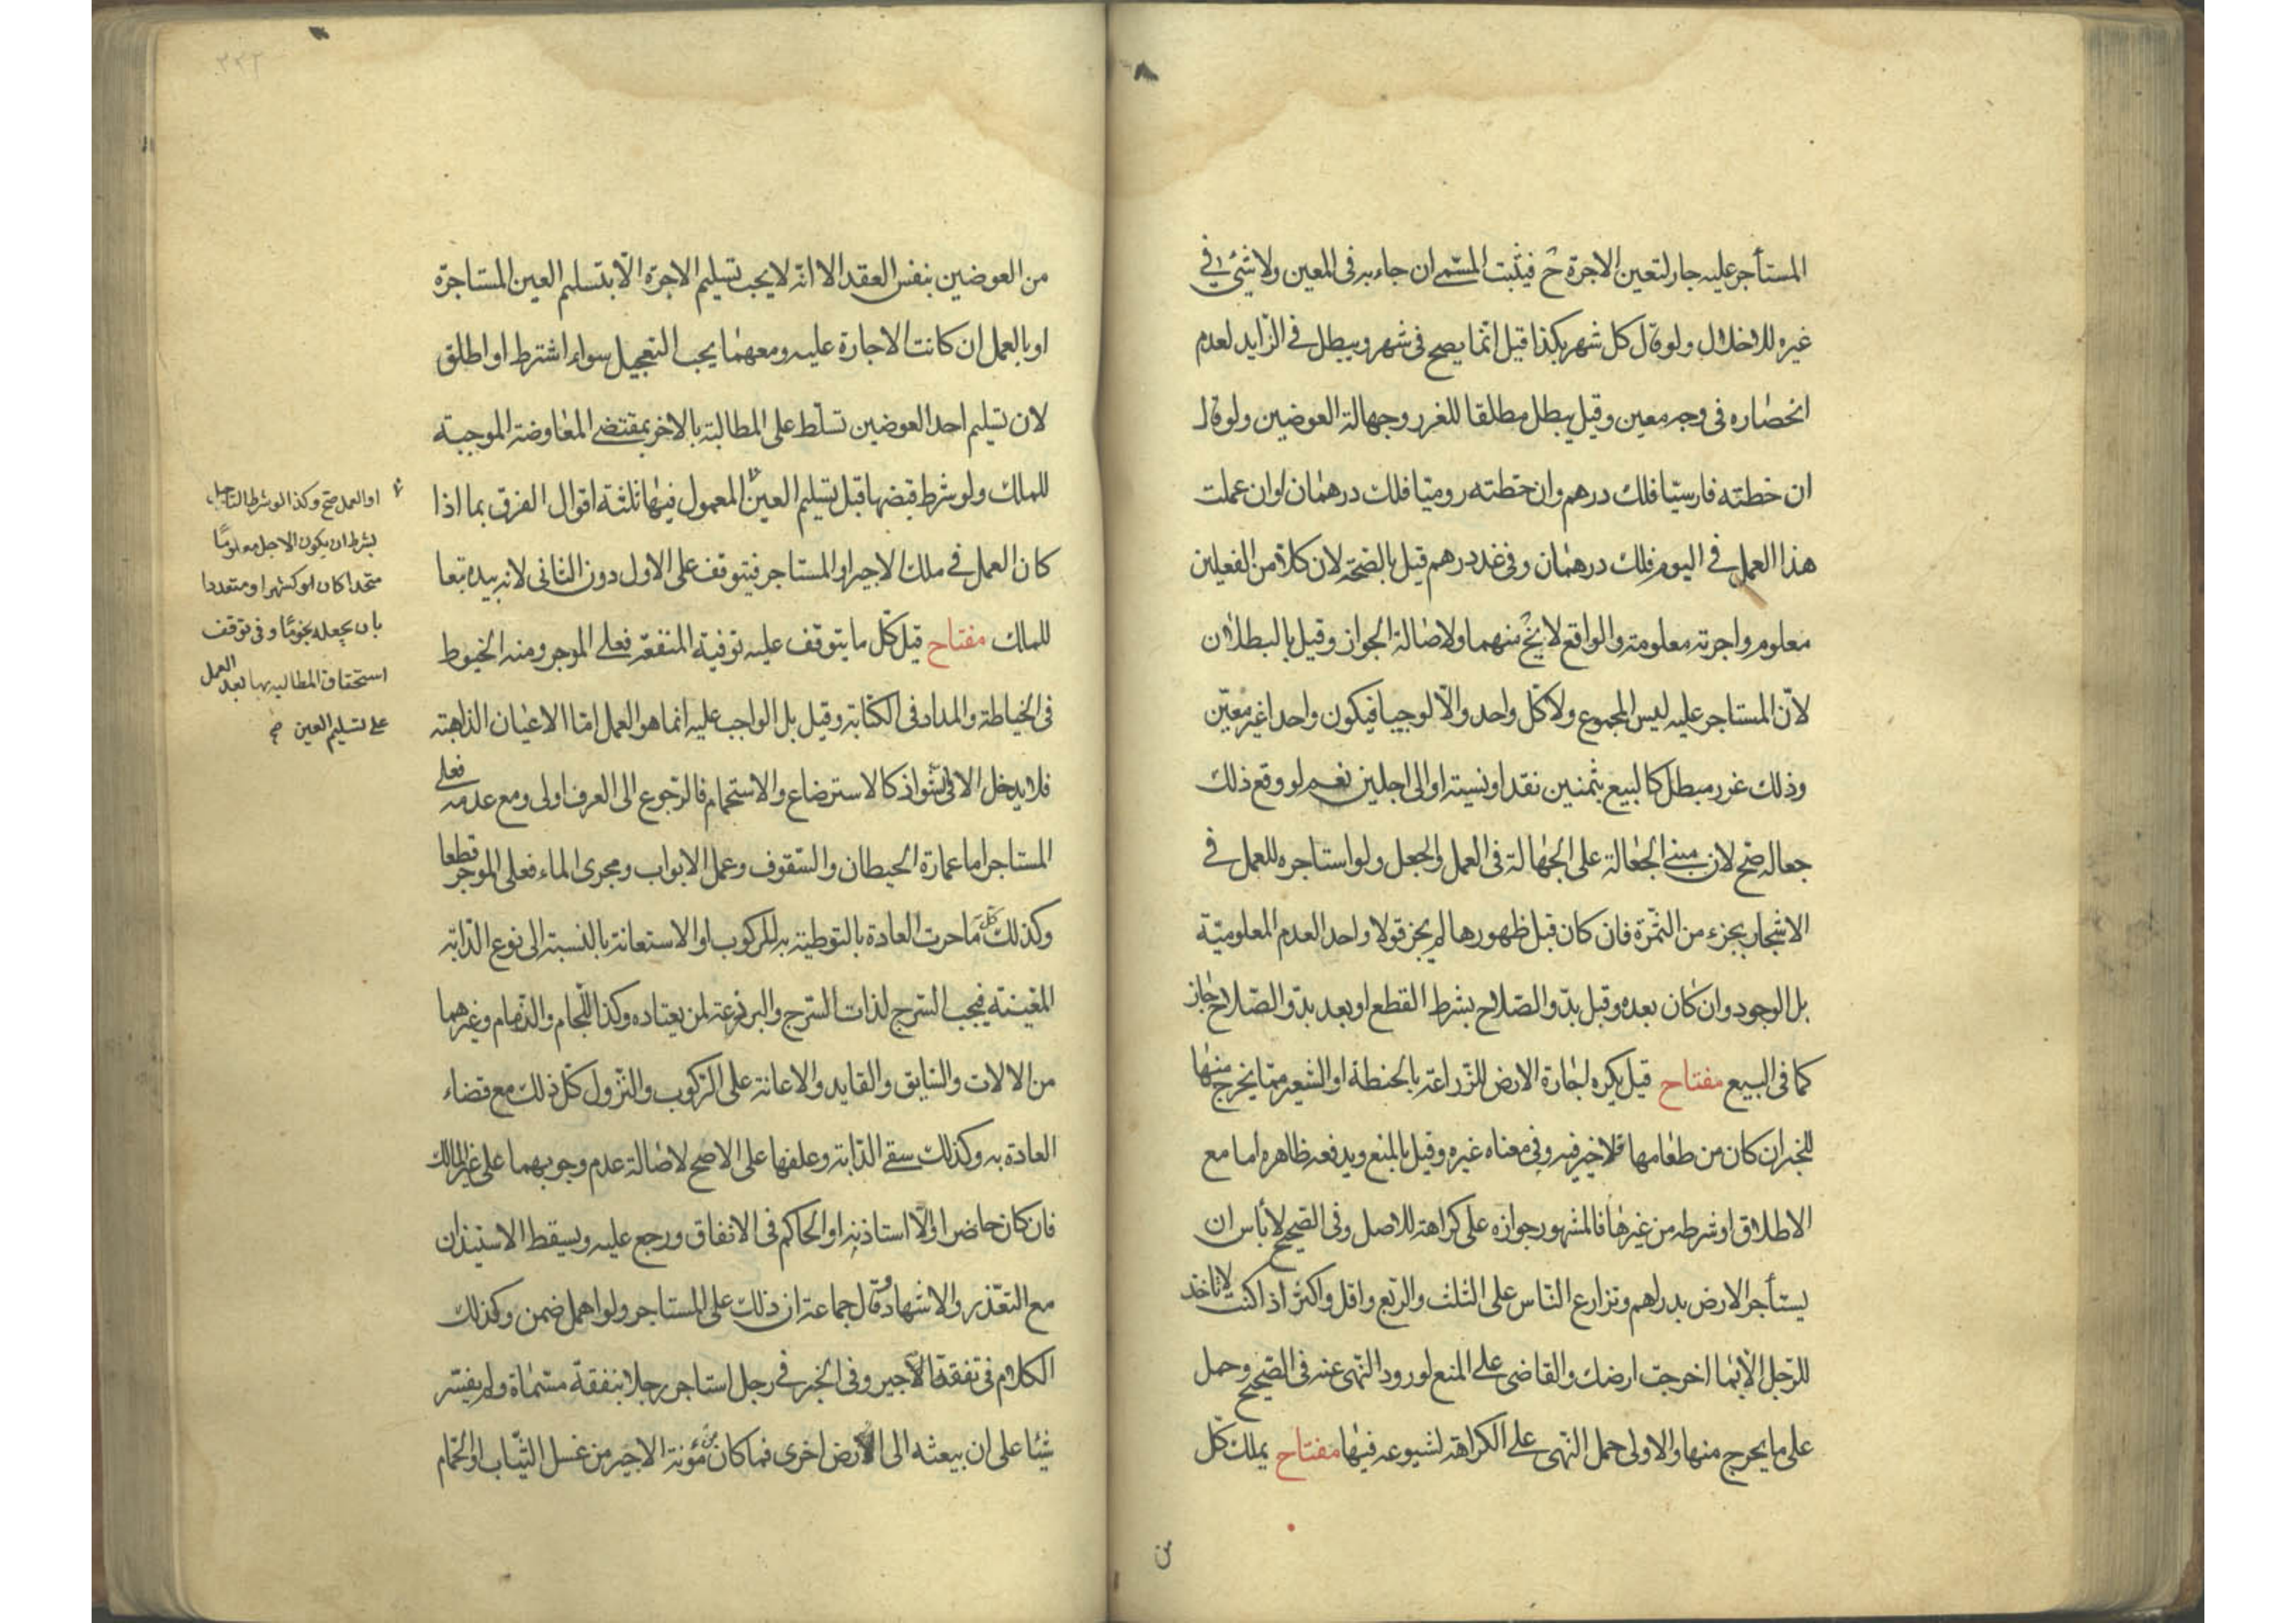 المستأجر عليه جار لتعين الاجرة ح فيثبت المسمى ان جاء به فى المعين ولا شئ فى
غيره للاخلال ولو قال كل شهر بكذا قيل انما يصح فى شهر ويبطل فى الزايد لعدم
انحصاره فى وجه معين وقيل يبطل مطلقا للغرر وجهالة العوضين ولو قال
ان خطته فارسيا فلك درهم وان خطته روميا فلك درهمان او ان عملت
هذا العمل فى اليوم فلك درهمان وفى غد درهم قيل بالصحة لان كلا من الفعلين
معلوم واجرته معلومة والواقع لا يخ منهما ولاصالة الجواز وقيل بالبطلان
لان المستاجر عليه ليس المجموع ولا كل واحد والا لوجبا فيكون واحدا غير معين
وذلك غرر مبطل كالبيع بثمنين نقدا ونسيته او الى اجلين نعم لو وقع ذلك
جعاله صح لان مبنى الجعالة على الجهالة فى العمل والجعل ولو استاجره للعمل فى
الاشجار بجزء من الثمرة فان كان قبل ظهورها لم يجز قولا واحدا لعدم المعلومية
بل الوجود وان كان بعده وقبل بدو الصلاح بشرط القطع او بعد بدو الصلاح جاز
كما فى البيع مفتاح قيل يكره اجارة الارض للزراعة بالحنطة او الشعير مما يخرج منها
للخبر ان كان من طعامها فلا خير فيه وفى معناه غيره وقيل بالمنع ويدفعه ظاهره اما مع
الاطلاق او شرطه من غيرها فالمشهور جوازه على كراهة للاصل وفى الصحيح لا بأس ان
يستأجر الارض بدراهم وتزارع الناس على الثلث والربع واقل واكثر اذا كنت لا تاخذ
للرجل الا بما اخرجت ارضك والقاضى على المنع لورود النهى عنه فى الصحيح وحمل
على ما يخرج منها والاولى حمل النهى على الكراهة لشيوعه فيها مفتاح يملك كل
من
من العوضين بنفس العقد الا انه لا يجب تسليم الاجرة الا بتسليم العين المستاجرة
او بالعمل ان كانت الاجارة عليه ومعهما يجب التعجيل سواء اشترط او اطلق
لان تسليم احد العوضين تسلط على المطالبة بالاخر بمقتضى المعاوضة الموجبة
للملك ولو شرط قبضها قبل تسليم العين المعمول فيها ثلثة اقوال الفرق بما اذا
كان العمل فى ملك الاجير او المستاجر فيتوقف على الاول دون الثانى لانه بيده تبعا
للملك مفتاح قيل كل ما يتوقف عليه توفية المنفعة فعلى الموجر ومنه الخيوط
فى الخياطة والمداد فى الكتابة وقيل بل الواجب عليه انما هو العمل اما الاعيان الذاهبة
فلا يدخل الا فى شواذ كالاسترضاع والاستحمام فالرجوع الى العرف اولى ومع عدمه فعلى
المستاجر اما عمارة الحيطان والسقوف وعمل الابواب ومجرى الماء فعلى الموجر قطعا
وكذلك كل ما جرت العادة بالتوطية به للركوب او الاستعانة بالنسبة الى نوع الدابة
المعينة فيجب السرج لذات السرج والبرذعة لمن يعتاده وكذا اللجام والزمام وغيرهما
من الالات والسايق والقايد والاعانة على الركوب والنزول كل ذلك مع قضاء
العادة به وكذلك سقى الدابة وعلفها على الاصح لاصالة عدم وجوبهما على غير المالك
فان كان حاضرا والا استاذنه او الحاكم فى الانفاق ورجع عليه ويسقط الاستيذان
مع التعذر والاشهاد وقال جماعة ان ذلك على المستاجر ولو اهمل ضمن وكذلك
الكلام فى نفقة الاجير وفى الخبر فى رجل استاجر رجلا بنفقة مسماة ولم يفسر
شيئا على ان يبعثه الى ارض اخرى فما كان من مؤنة الاجير من غسل الثياب او الحمام
او العمل صح وكذا لو شرط التاجيل
بشرط ان يكون الاجل معلوما
متحدا كان او كشهر او متعددا
بان يجعله نجوما وفى توقف
استحقاق المطالبة بها بعد العمل
على تسليم العين صح